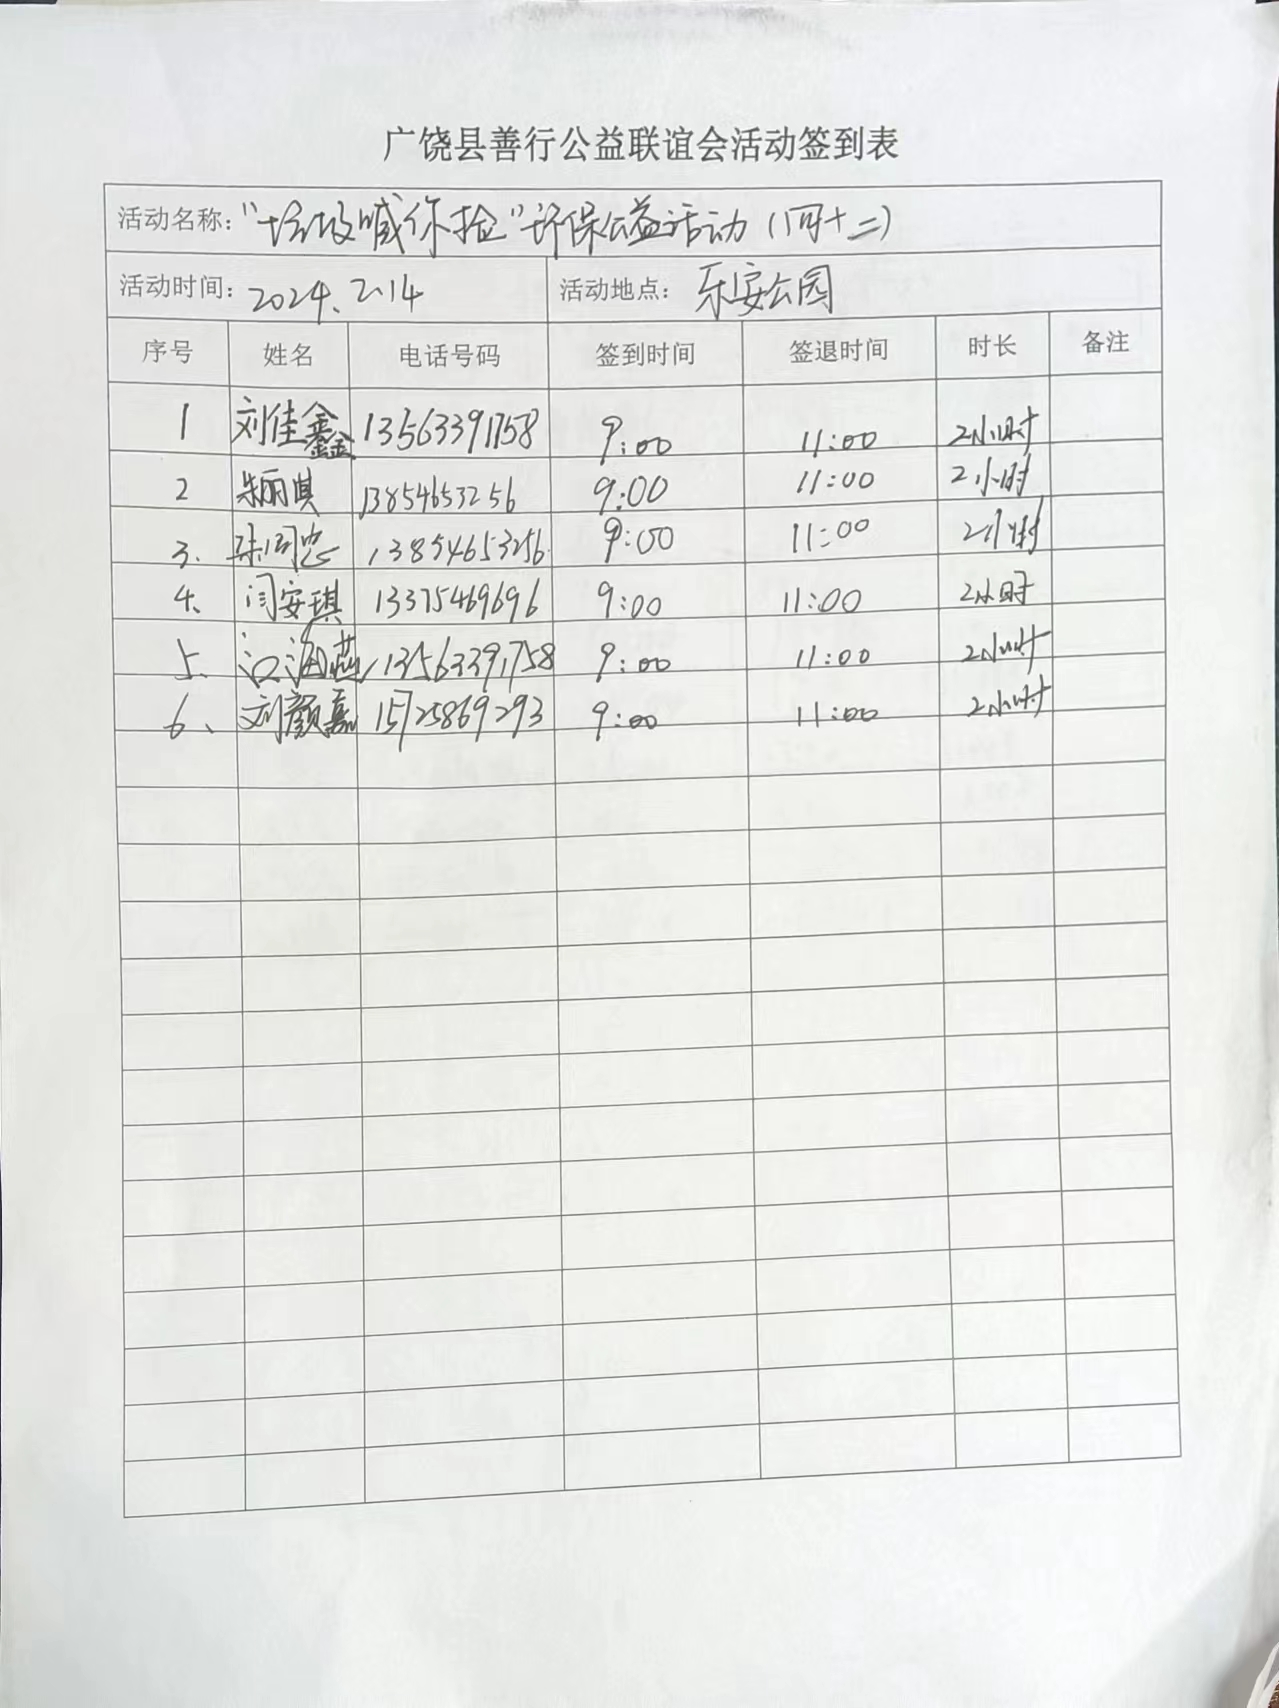 广饶县善行公益联谊会活动签到表
活动名称：“垃圾喊你捡”环保公益活动（四十二）
活动时间：2024.2.14 活动地点：乐安公园
序号 姓名 电话号码 签到时间 签退时间 时长 备注
1 刘佳鑫 13563391758 9:00 11:00 2小时
2 朱丽琪 13854653256 9:00 11:00 2小时
3. 13854653256 9:00 11:00 2小时
4、 闫安琪 13375469696 9:00 11:00 2小时
5、 江海燕 13563391758 9:00 11:00 2小时
6、 刘颜嘉 15725869293 9:00 11:00 2小时